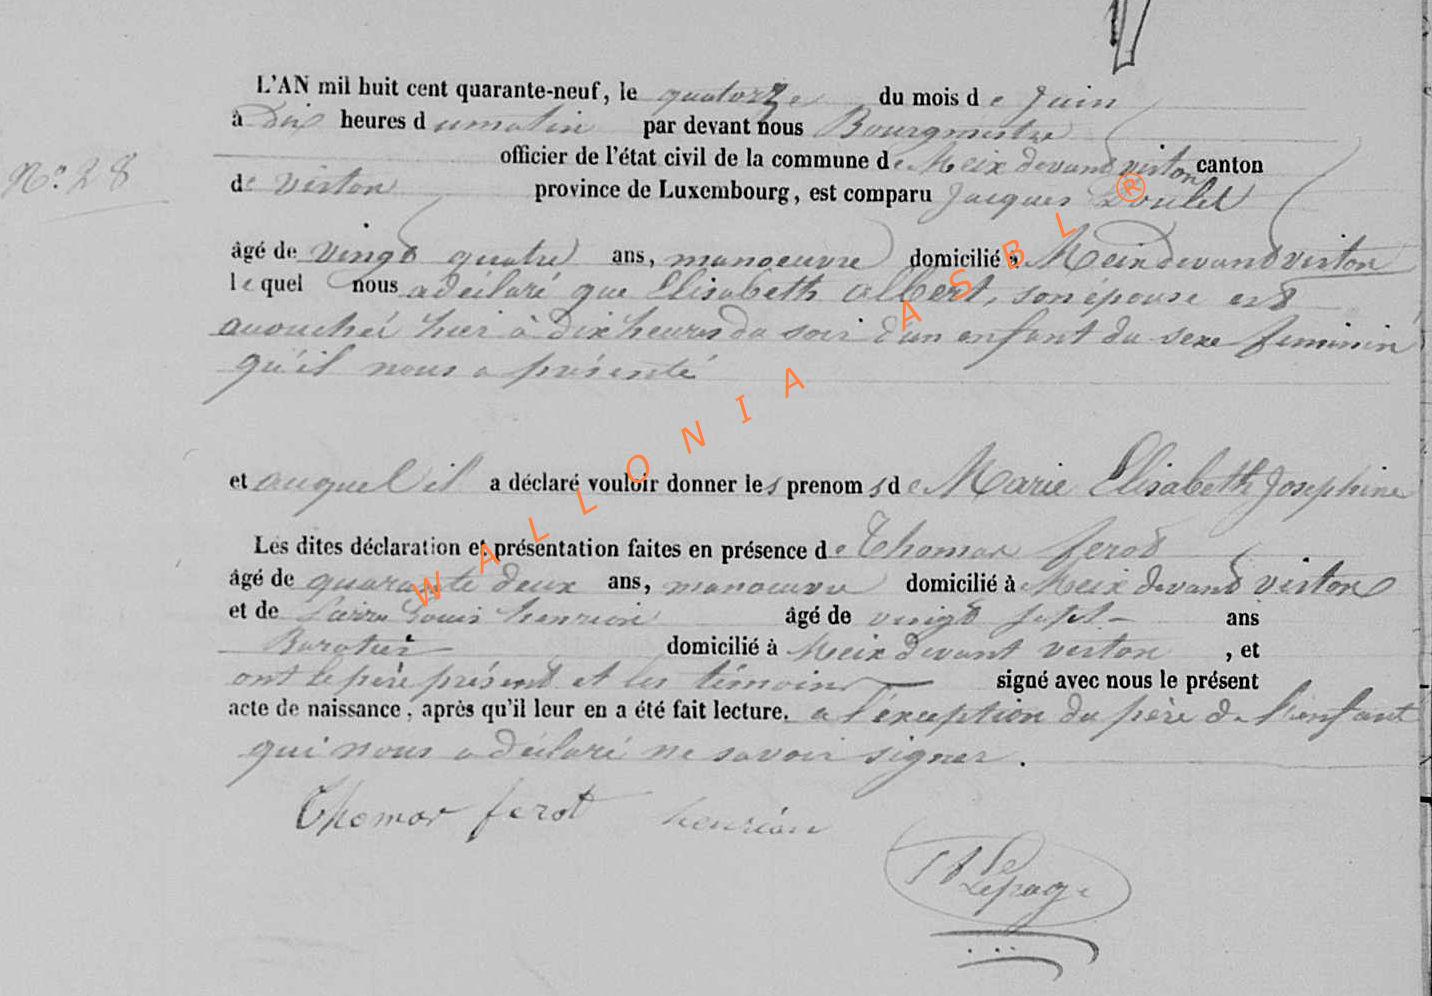 L'AN mil huit cent quarante-neuf, le quatorze du mois de Juin
à Dix heures d umatin par devant nous Bourgmestre
officier de l'état civil de la commune de Meix devand virton canton
N° 28
de virton province de Luxembourg, est comparu Jacques
âgé de vingt quatre ans, manoeuvre domicilié à Meix devand virton
le quel nous a déclaré que Elisabeth Albert, son épouse est
accouchée hier à Dix heures du soir d'un enfant du sexe feminin
qu'il nous a présenté
et auquel il a déclaré vouloir donner les prenoms de Marie Elisabeth Josephine
Les dites déclaration et présentation faites en présence de Thomas ferot
âgé de quarante deux ans, manoeuvre domicilié à Meix devand virton
et de Louis henrion âgé de vingt sept ans
domicilié à Meix devant virton , et
ont le père présent et les témoins signé avec nous le présent
acte de naissance, après qu'il leur en a été fait lecture. a l'exception du père de l'enfant
qui nous a déclaré ne savoir signer.
Thomas ferot henrion
Lepage
WALLONIA ASBL ®